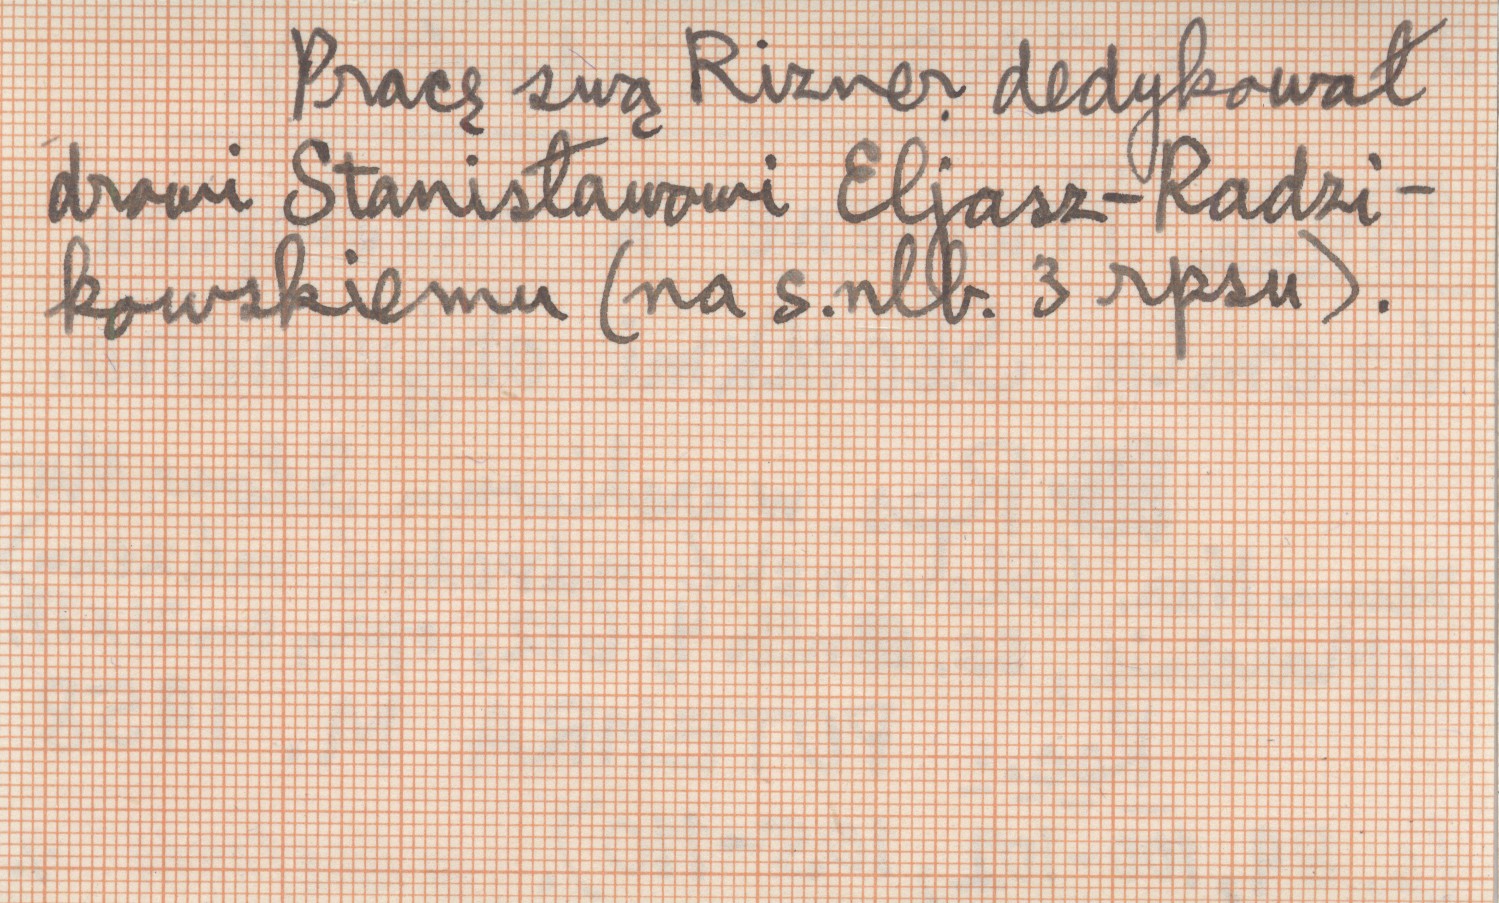 Pracę swą Rizner dedykował
drowi Stanisławowi Eljasz-Radzi-
kowskiemu (na s.nlb. 3 rpsu).